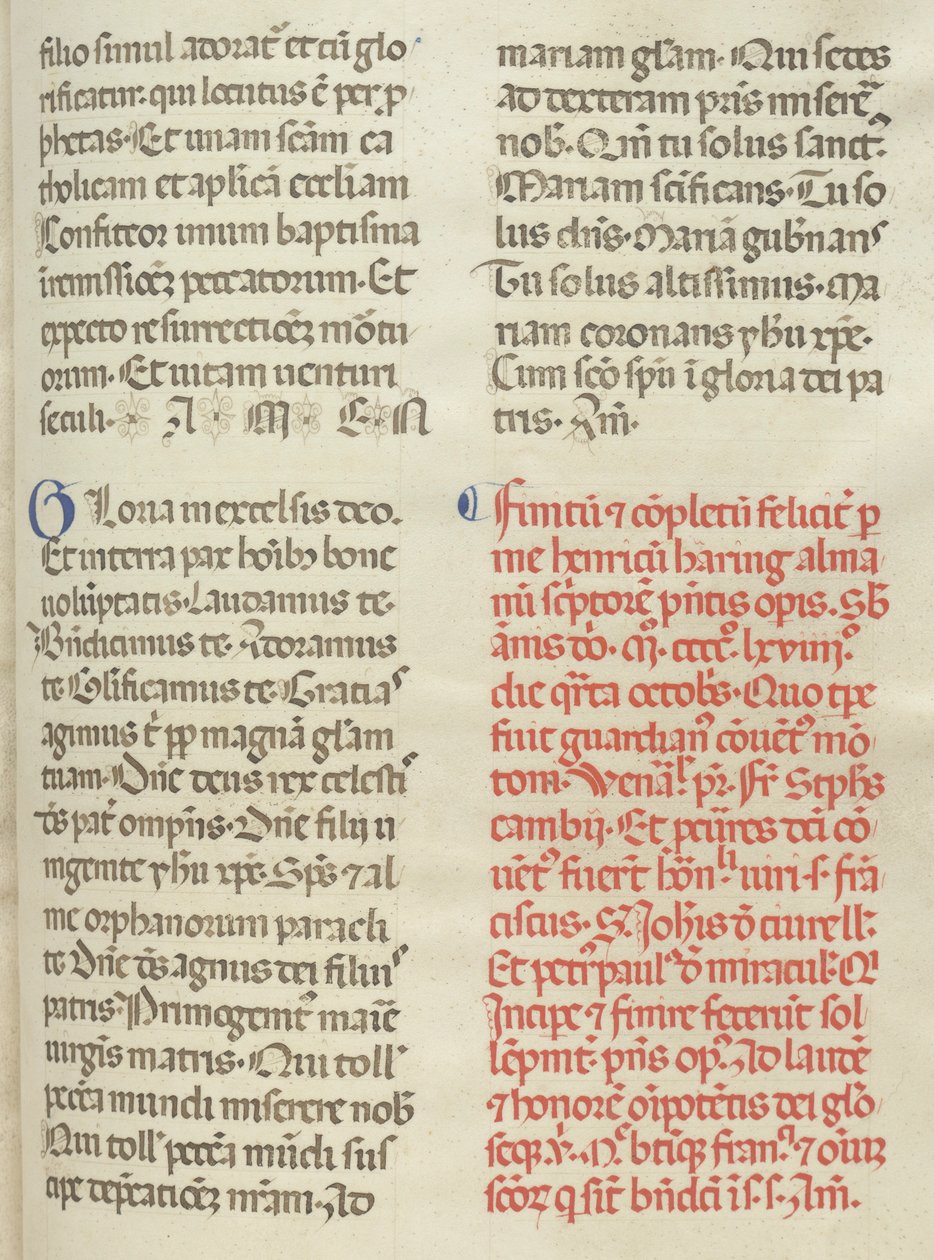 filio simul adorat᷑ et cũ glo
rificatur. qui locutus ẽ per ꝓ
phetas. Et unam scãm ca
tholicam et aplicã eccliam
Confiteor unum baptisma
in remissiõꝫ peccatorum. Et
expecto resurrectiõꝫ mõtu
orum. Et uitam uenturi
seculi. A M E N
Gloria in excelsis deo.
Et in terra pax hoĩbꝫ bone
uolũptatis. Laudamus te.
Bñdicimus te. Adoramus
te. Glĩficamus te. Gracias
agimus t̾ ꝓp magnã glãm
tuam. Dñe deus rex celesti
ds̃ pat̾ omp̃ñs. Dñe filij u
ingenite yhũ xp̃e. Sp̃s ⁊ al
me orphanorum paracli
te. Dñe ds̃ agnus dei filius
patris. Primogenit᷑ maĩe
uirgĩs matris. Qui toll᷑
pccãa mundi miserere nob̃
Qui toll᷑ pccãa mũdi sus
cipe dep̃catiõꝫ nr̃am. Ad
mariam glãm. Qui sedes
ad dexteram pr̃is miserẽ
nob̃. Qm̃ tu solus sanct᷑.
Mariam scĩficans. Tu so
lus dñs. Mariã gub̃nans
Tu solus altissimus. Ma
riam coronans yhũ xp̃e.
Cum scõ spũ ĩ gloria dei pa
tris. Am̃.
Finitũ ⁊ cõpletũ felicit̾ ꝑ
me henricũ haring alma
nũ sc̾ptorẽ pñtis opis. Sb̃
ãnis dõ. Mº. ccccº. lxviiijº.
die qr̃ta octob̃s. Quo tp̃e
fuit guardianꝰ cõuẽtꝰ mõ
tom. Venãl̃. pr̃. Fr̃. Stephs̃
cambij. Et
uẽtꝰ fuer̃t hõn. uiri. s. frã
ciscus. S. Joh̃is d̃ ciurell᷑.
Et petrꝰ paulꝰ d̃ miracul᷑. Qi
Incipe ⁊ finire fecerũt sol
lẽpmt̾. pñs opꝰ. Ad laudẽ
⁊ honorẽ oĩpotẽtis dei glõ
seqꝫ. V. M. btĩqꝫ franº. ⁊ oĩuꝫ
scõꝝ q̃ sit bñdcĩ ĩ s. s. Am̃.